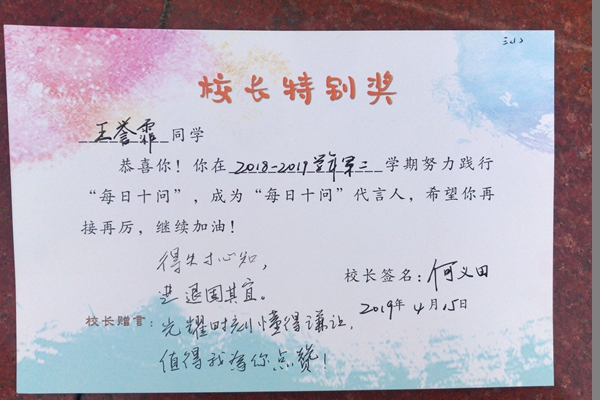 校长特别奖
王誉霏同学
恭喜你！你在2018-2019学年第二学期努力践行
“每日十问”，成为“每日十问”代言人，希望你再
接再厉，继续加油！
得失寸心知，
校长签名：何义田
进退因其宜。
2019年4月15日
校长赠言：光耀时刻懂得谦让，
值得我为你点赞！